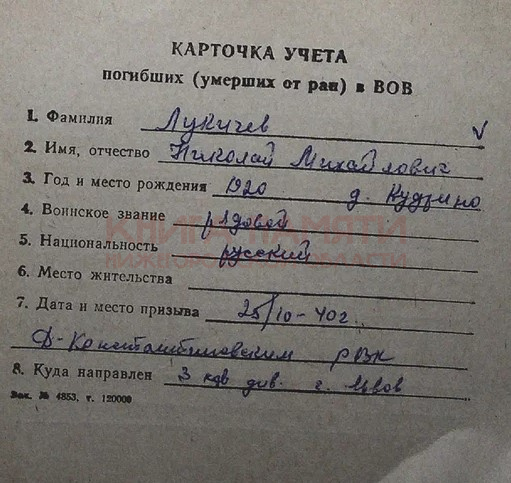 КАРТОЧКА УЧЕТА
погибших (умерших от ран) в ВОВ
1. Фамилия Лукичев
2. Имя, отчество Николай Михайлович
3. Год и место рождения 1920 д. Кудрино
4. Воинское звание рядовой
КНИГА ПАМЯТИ
5. Национальность русский
НИЖЕГОРОДСКОЙ ОБЛАСТИ
6. Место жительства
7. Дата и место призыва 25/10-40г.
Д-Константиновским РВК
8. Куда направлен 3 кав див. г. Львов
Зак. № 4853, т. 120000